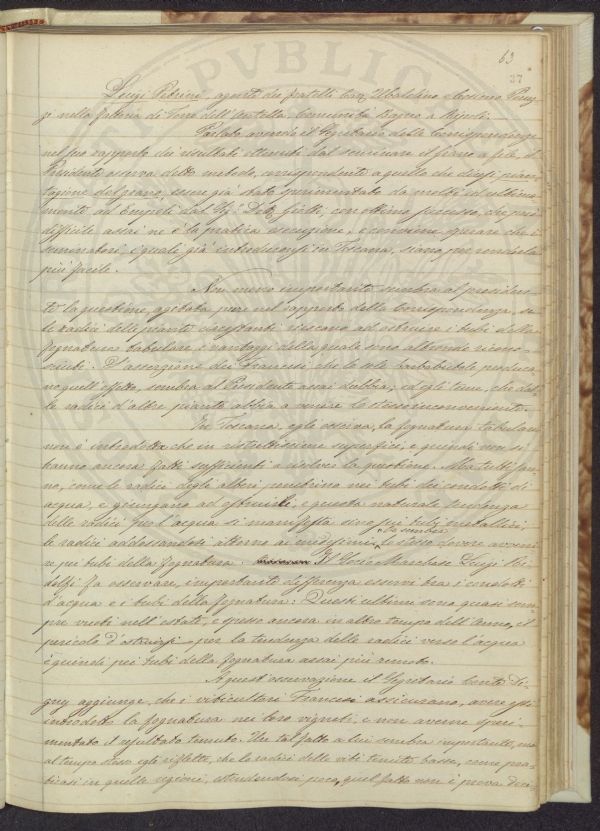 63
37
Luigi Pedrini, agente dei fratelli Conti Ubaldino e Cosimo Peruz-
zi nella fattoria di Torre dell'Antella, Comunità Bagno a Ripoli.
Parlato avendo il Segretario delle Corrispondenze
nel suo rapporto dei resultati ottenuti dal seminare il grano a file, il
Presidente osserva detto metodo, corrispondente a quello che dicesi pian-
tagione del grano, essere già stato sperimentato da molti ed ultima-
mente ad Empoli dal Sig. Dott. con ottimo successo, che più
difficile assai ne è la pratica esecuzione, e conviene sperare che i
seminatori, i quali già introduconsi in Toscana, siano per renderla
più facile.
Non meno importante sembra al presiden-
te la questione, agitata pure nel rapporto della Corrispondenza, se
le radici delle piante circostanti riescano ad ostruire i tubi della
fognatura tubulare i vantaggi della quale sono altronde ricono-
sciuti. L'asserzione dei Francesi che le sole barbabietole produca-
no quell'effetto, sembra al Presidente assai dubbia, ed egli teme, che dal-
le radici d'altre piante abbia a venire lo stesso inconveniente.
In Toscana, egli osserva, la fognatura tubulare
non è introdotta che in ristrettissime superfici, e quindi non si
hanno ancora fatti sufficienti a risolver la questione. Ma tutti san-
no, come le radici degli alberi penetrino nei tubi dei condotti di
acqua, e giungano ad ostruirli, e questa naturale tendenza
delle radici per l'acqua si manifesta sino pei tubi metallici,
le radici addossandosi attorno ai medesimi; lo stesso dovere avveni-
re pei tubi della fognatura. Il Socio Marchese Luigi Ri-
dolfi fa osservare, importante differenza esservi tra i condotti
d'acqua e i tubi della fognatura. Questi ultimi sono quasi sem-
pre vuoti nell'estate, e spesso ancora in altro tempo dell'anno, il
pericolo d'ostruirsi per la tendenza delle radici verso l'acqua
è quindi pei tubi della fognatura assai più remoto.
A quest'osservazione il Segretario
aggiunge, che i viticultori Francesi assicurano, avere essi
introdotto la fognatura nei loro vigneti, e non averne speri-
mentato il resultato temuto. Un tal fatto a lui sembra importante, ma
al tempo stesso egli riflette, che le radici delle viti tenute basse, come pra-
ticasi in quelle regioni, estendendosi poco, quel fatto non è prova deci-